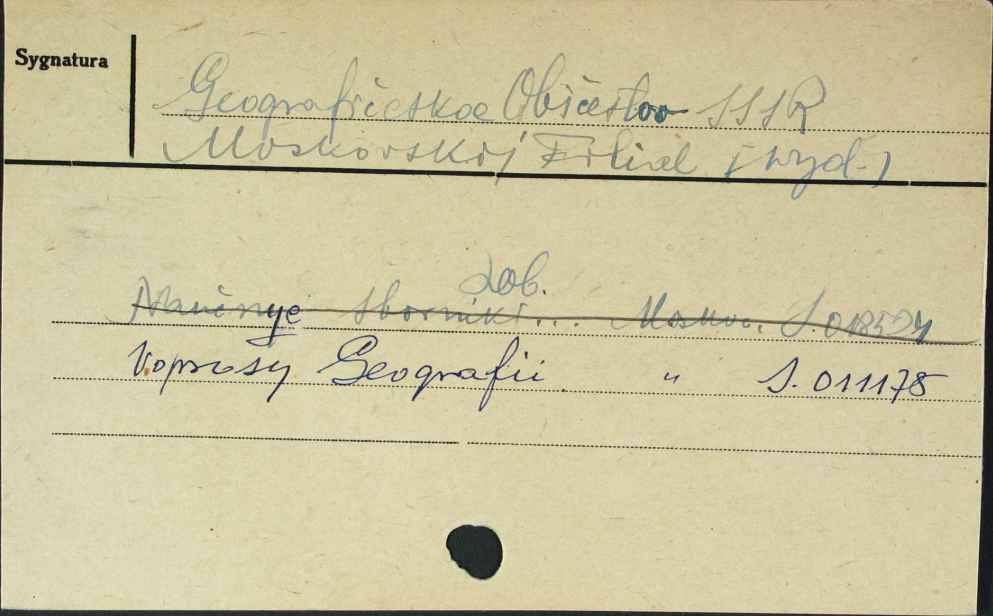 Sygnatura
Geografičeskoe Obščestvo SSSR
Moskovskij Filial [wyd.]
Zob.
Naučnye Sborniki... Moskva. S 018524
Voprosy Geografii " S. 011178